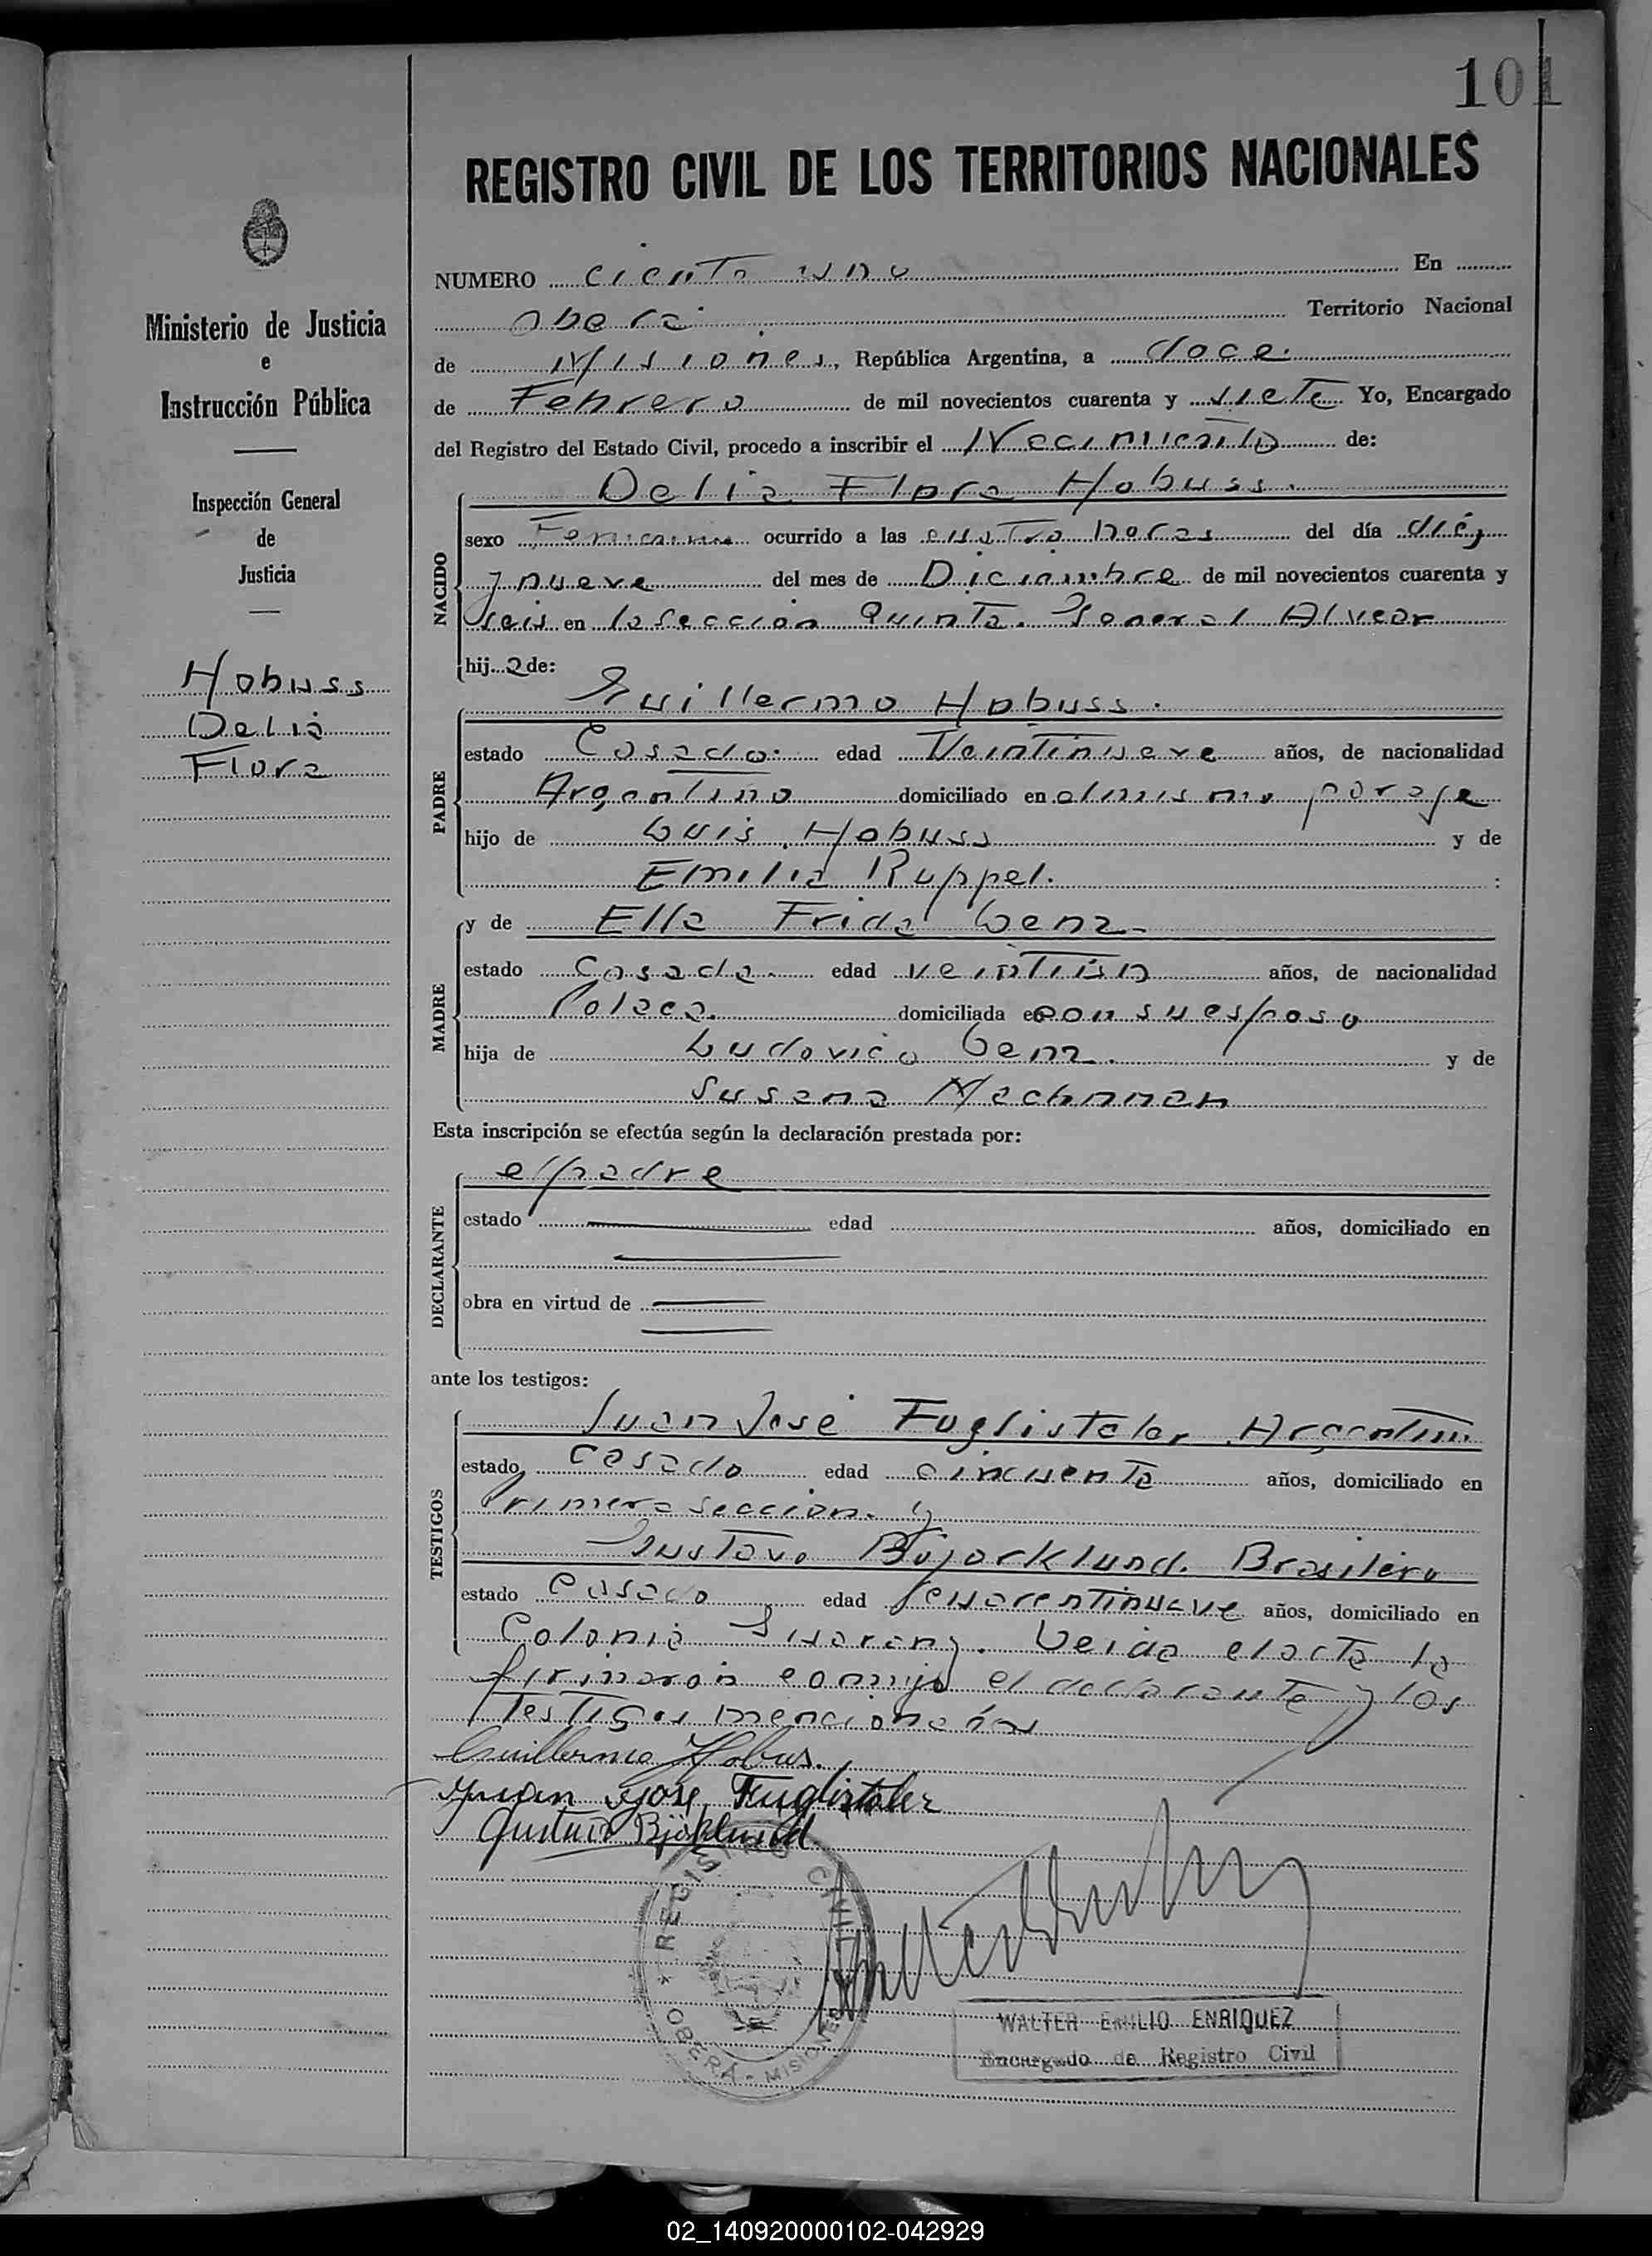 101
REGISTRO CIVIL DE LOS TERRITORIOS NACIONALES
Ministerio de Justicia
e
Instrucción Pública
Inspección General
de
Justicia
Hobuss
Delia
Flora
NUMERO ciento uno En
Oberá Territorio Nacional
de Misiones, República Argentina, a doce
de Febrero de mil novecientos cuarenta y siete Yo, Encargado
del Registro del Estado Civil, procedo a inscribir el Nacimiento de:
NACIDO
Delia Flora Hobuss.
sexo Femenino ocurrido a las cuatro horas del día diez
y nueve del mes de Diciembre de mil novecientos cuarenta y
seis en la sección Quinta. General Alvear
hij a de:
PADRE
Guillermo Hobuss.
estado Casado edad Veintinueve años, de nacionalidad
Argentino domiciliado en el mismo paraje
hijo de Luis Hobuss y de
Emilia Ruppel.
MADRE
y de Ella Frida Lenz
estado Casada. edad años, de nacionalidad
Polaca. domiciliada con su esposo
hija de Ludovico Lenz. y de
Susana
Esta inscripción se efectúa según la declaración prestada por:
DECLARANTE
el padre
estado edad años, domiciliado en
obra en virtud de
ante los testigos:
TESTIGOS
Juan José Fuglistaler Argentino
estado casado edad cincuenta años, domiciliado en
Primera sección. y
Gustavo Bojorklund. Brasilero
estado casado edad años, domiciliado en
Colonia Guarany. Leida el acta la
firmaron conmigo el declarante y los
testigos mencionados
Guillermo Hobus.
Juan Jose Fuglistaler
Gustavo Björklund
REGISTRO CIVIL
OBERA - MISIONES
WALTER EMILIO ENRIQUEZ
Encargado de Registro Civil
02_140920000102-042929